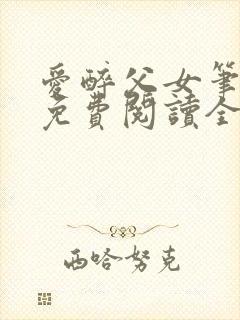 愛醉父女筆
免費閱讀全
西哈努克